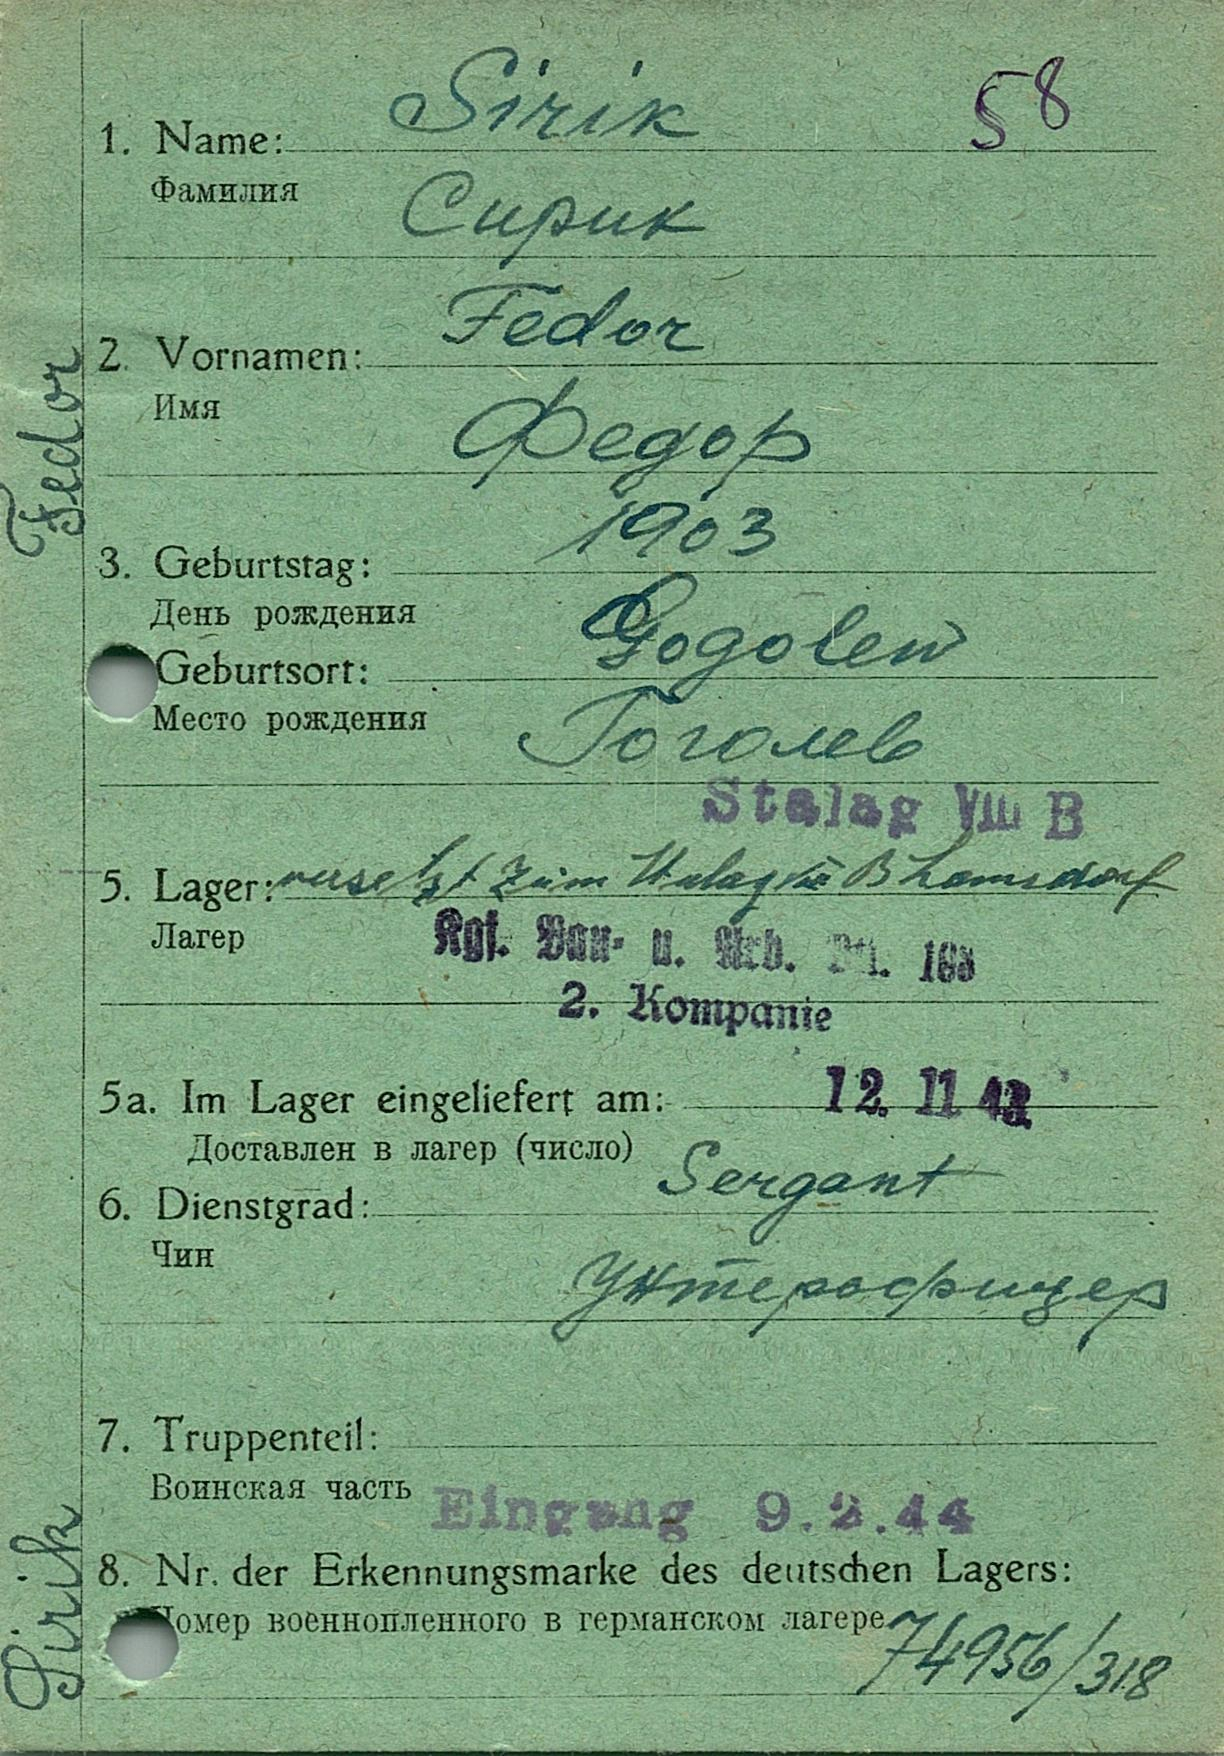 58
Sirik
1. Name:
Фамилия
Сирик
Fedor
2. Vornamen:
Имя
Федор
1903
3. Geburtstag:
День рождения
Gogolew
Geburtsort:
Место рождения
Гоголев
Stalag VIII B
5. Lager: versetzt zum B Lamsdorf
Лагер
Kgf. Bau- u. Arb.
2. Kompanie
5a. Im Lager eingeliefert am: 12. 11 43
Доставлен в лагер (число)
Sergant
6. Dienstgrad:
Чин
Унтерофицер
7. Truppenteil:
Воинская часть
Eingang 9.2.44
8. Nr. der Erkennungsmarke des deutschen Lagers:
Номер военнопленного в германском лагере
74956/318
Sirik Fedor